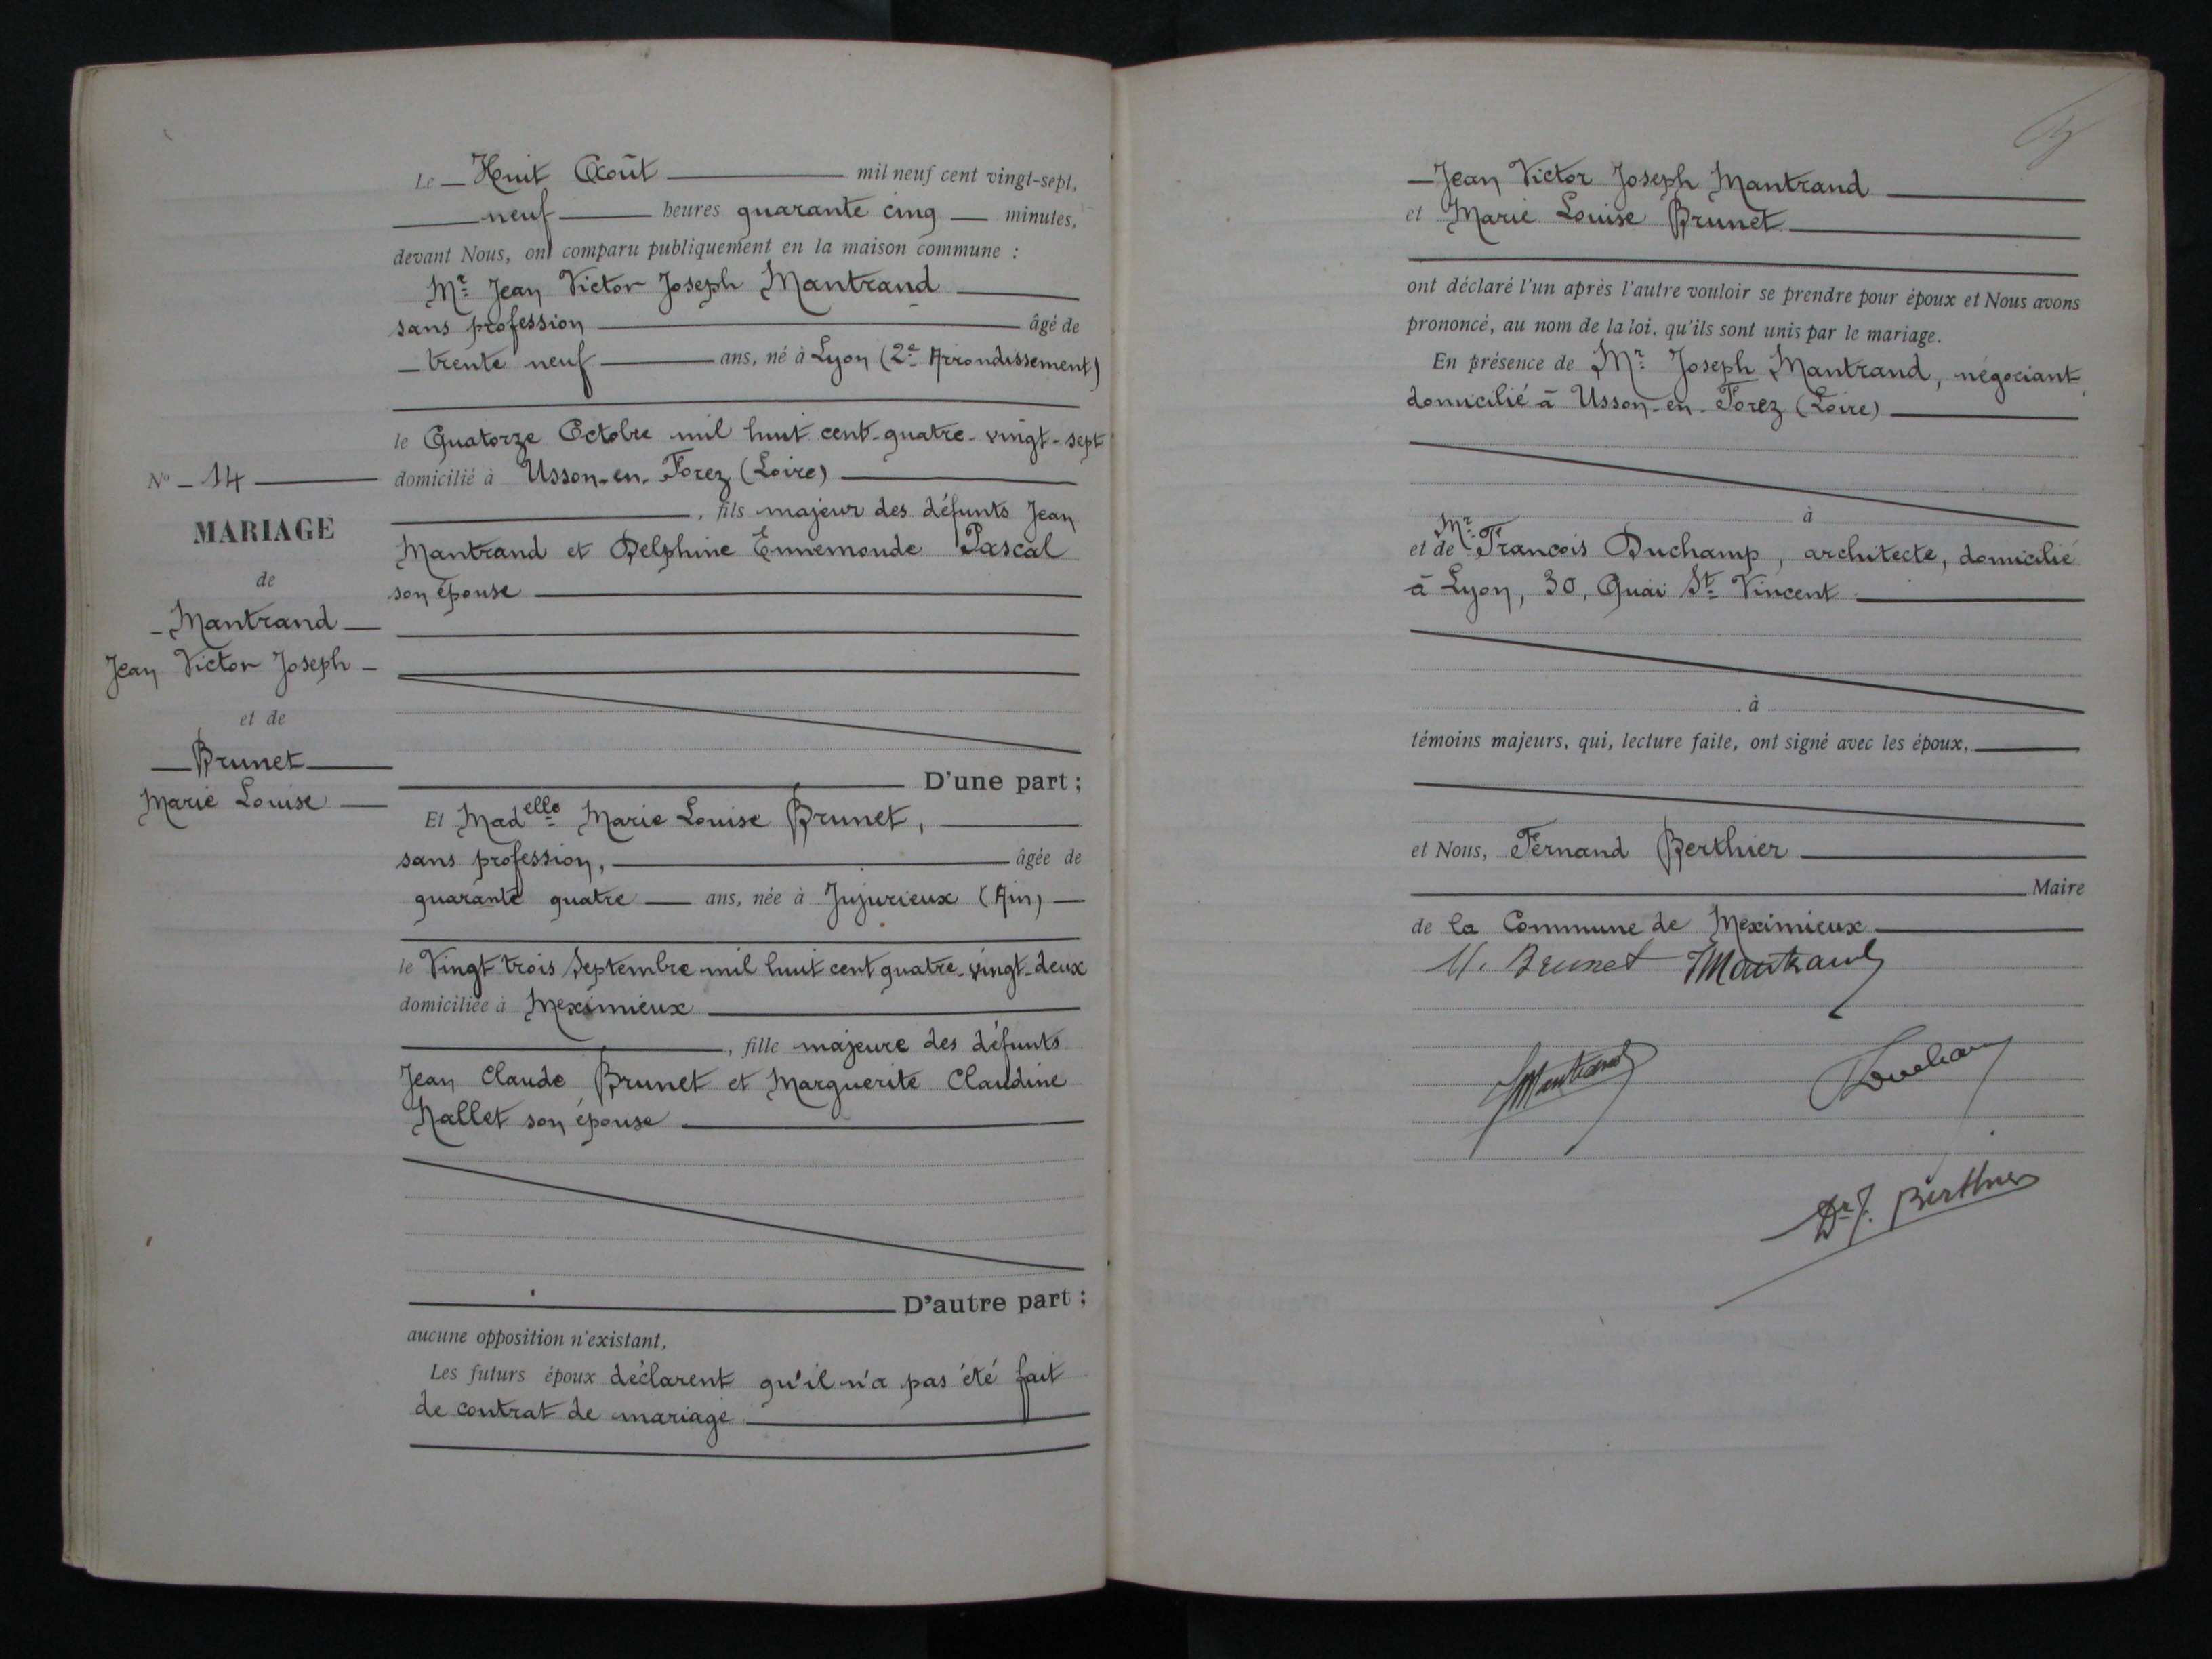 Le Huit Août mil neuf cent vingt-sept,
neuf heures quarante cinq minutes,
devant Nous, ont comparu publiquement en la maison commune :
Mr Jean Victor Joseph Mantrand
sans profession âgé de
trente neuf ans, né à Lyon (2e Arrondissement)
le Quatorze Octobre mil huit cent-quatre-vingt-sept
domicilié à Usson-en-Forez (Loire)
, fils majeur des défunts Jean
Mantrand et Delphine Ennemonde Pascal
son épouse
D'une part ;
Et Madelle Marie Louise Brunet,
sans profession, âgée de
quarante quatre ans, née à Jujurieux (Ain)
le Vingt trois Septembre mil huit cent quatre-vingt-deux
domiciliée à Meximieux
, fille majeure des défunts
Jean Claude Brunet et Marguerite Claudine
Nallet son épouse
D'autre part ;
aucune opposition n'existant,
Les futurs époux déclarent qu'il n'a pas été fait
de contrat de mariage
No 14
MARIAGE
de
Mantrand
Jean Victor Joseph
et de
Brunet
Marie Louise
Jean Victor Joseph Mantrand
et Marie Louise Brunet
ont déclaré l'un après l'autre vouloir se prendre pour époux et Nous avons
prononcé, au nom de la loi, qu'ils sont unis par le mariage.
En présence de Mr Joseph Mantrand, négociant
domicilié à Usson-en-Forez (Loire)
à
et de Mr François Duchamp, architecte, domicilié
à Lyon, 30, Quai St Vincent
à
témoins majeurs, qui, lecture faite, ont signé avec les époux,
et Nous, Fernand Berthier
Maire
de la Commune de Meximieux
M. Brunet JMantrand
JMantrand Duchamp
Dr F. Berthier